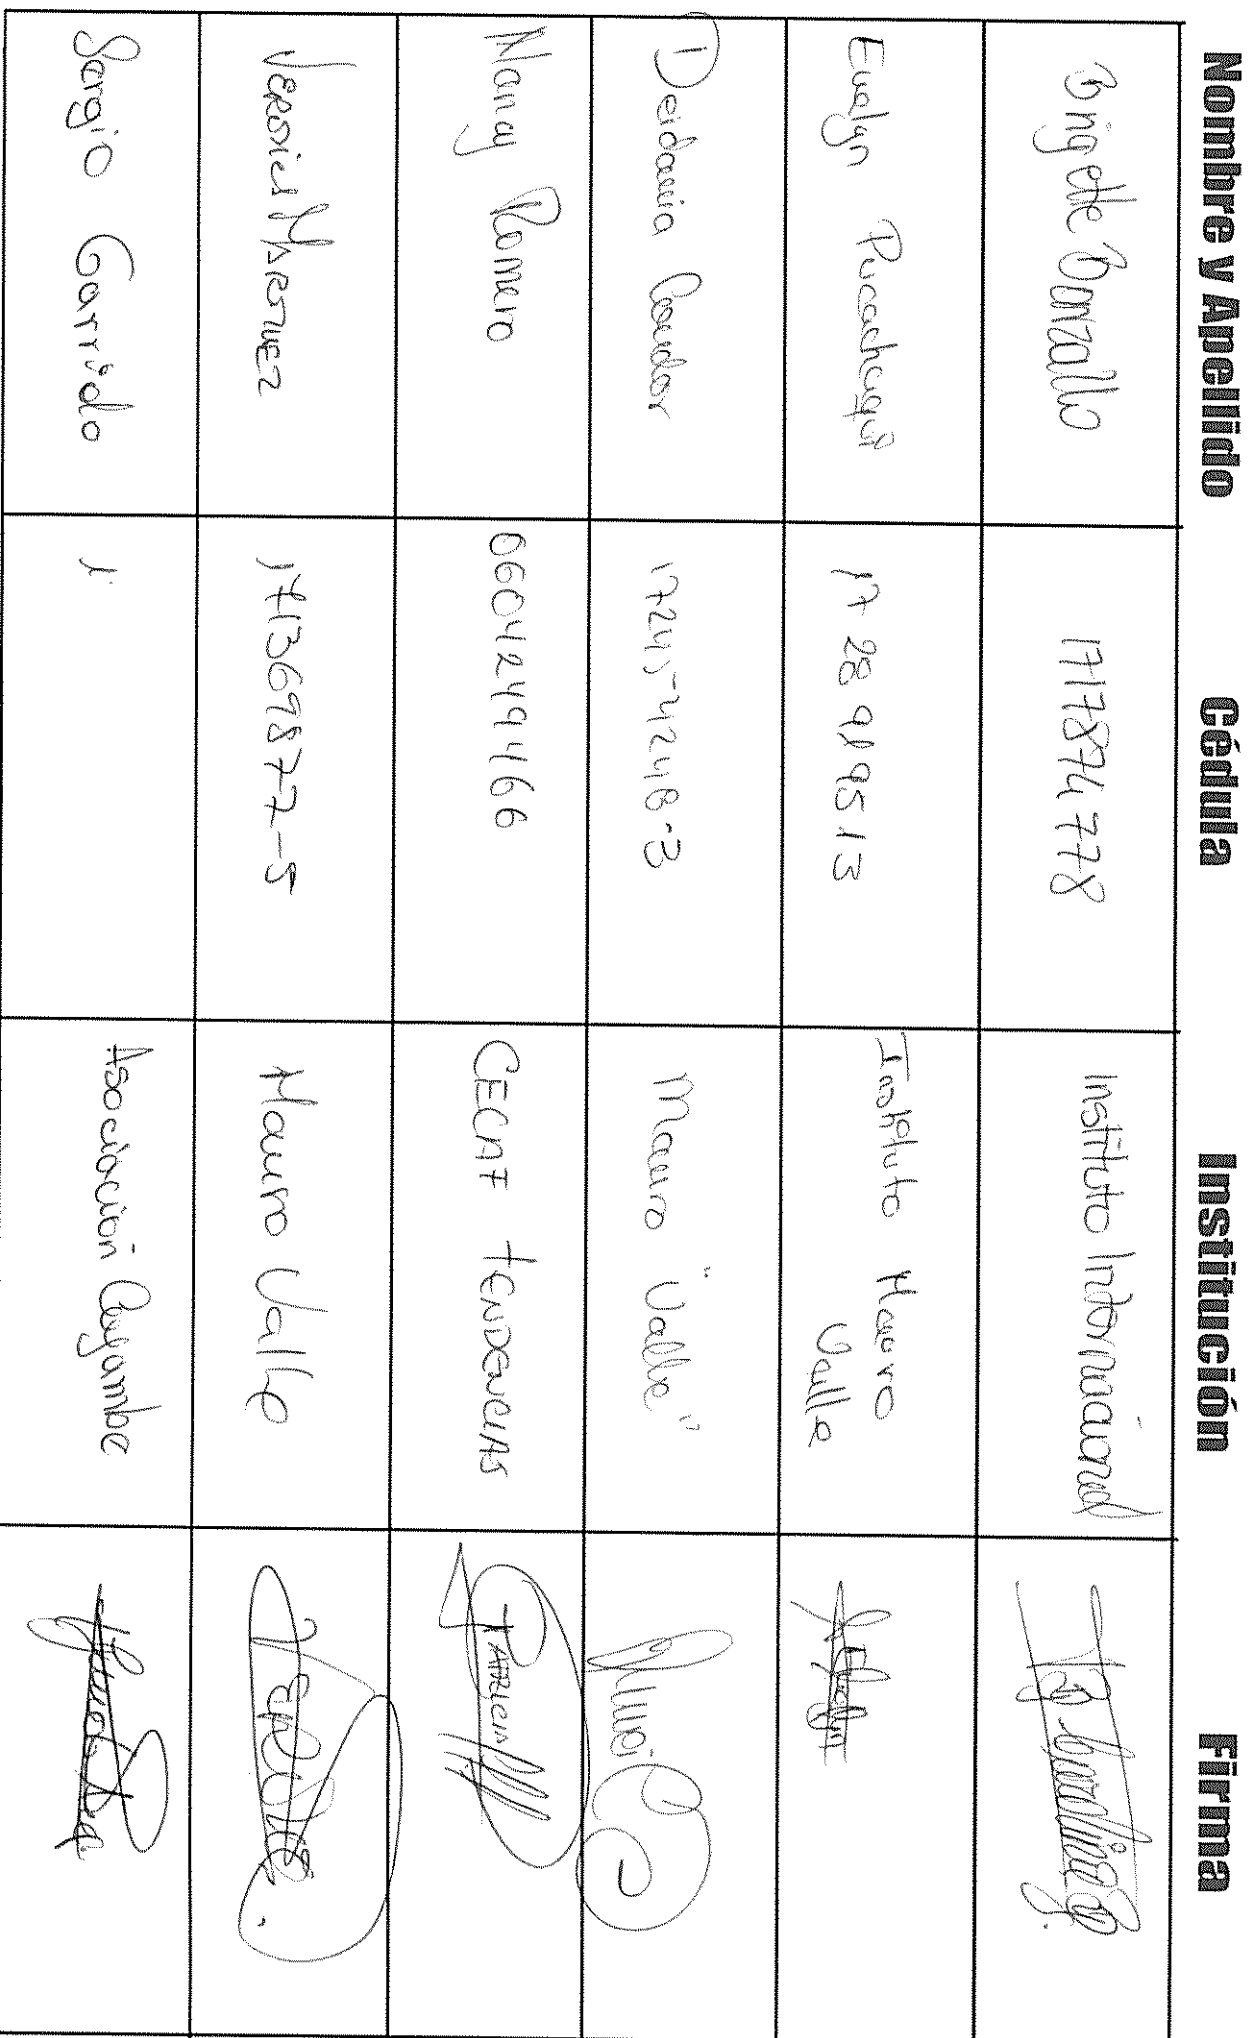 Nombre y Apellido Cédula Institución Firma
Brigitte Bonzallo 1717874778 Instituto Internacional
Evelyn Pucachaqui 1728919513 Instituto Mauro Valle
Deidamia Condor 172454248-3 Mauro "Valle"
Nancy Romero 0604249466 CECAF TENDENCIAS PATRICIA
171369877-5 Mauro Valle
Sergio Garrido Asociación Cayambe